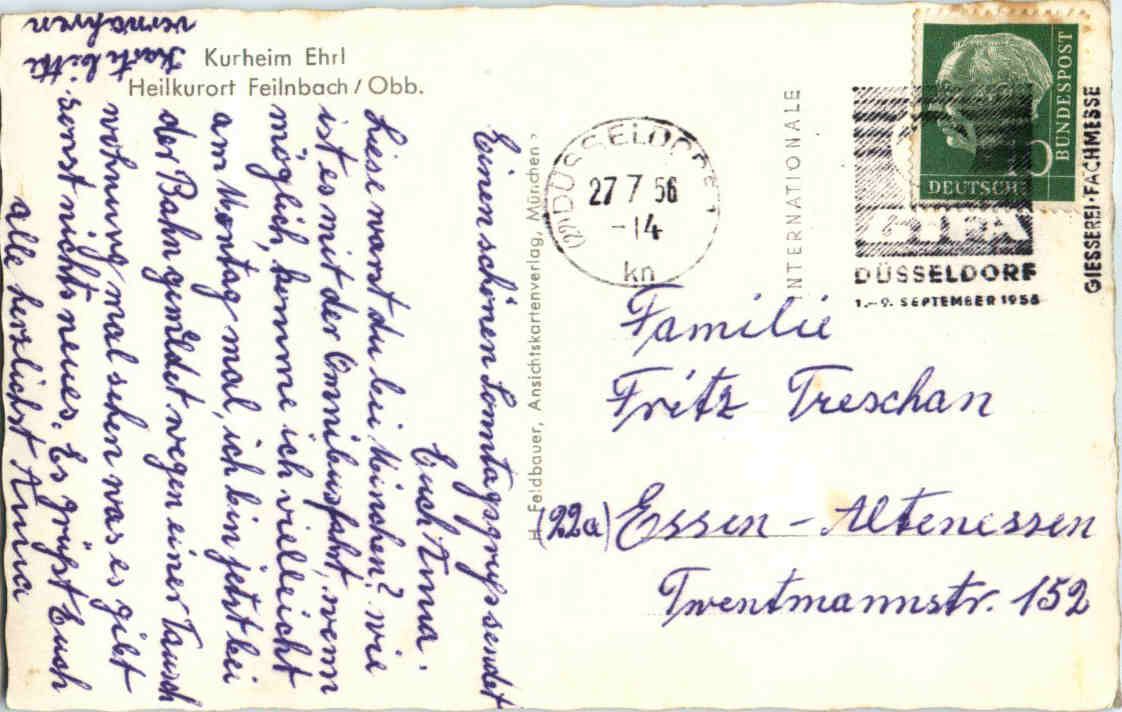 Kurheim Ehrl
Heilkurort Feilnbach / Obb.
Einen schönen Sonntagsgruß sendet
Euch Anna.
Liese warst du bei Meinchen? wie
ist es mit der Omnibusfahrt, wenn
möglich, komme ich vielleicht
am Montag mal, ich bin jetzt bei
der Bahn gemeldet wegen einer Tausch
wohnung mal sehen was es gibt
sonst nichts neues. Es grüßt Euch
alle herzlichst Anna
Karte bitte
verwahren
H. Feldbauer, Ansichtskartenverlag, München
(22a) DÜSSELDORF
27 7 56
-14
kn
INTERNATIONALE
GIFA
DÜSSELDORF
1.-9. SEPTEMBER 1956
GIESSEREI-FACHMESSE
DEUTSCHE
BUNDESPOST
10
Familie
Fritz Treschan
(22a) Essen - Altenessen
Twentmannstr. 152